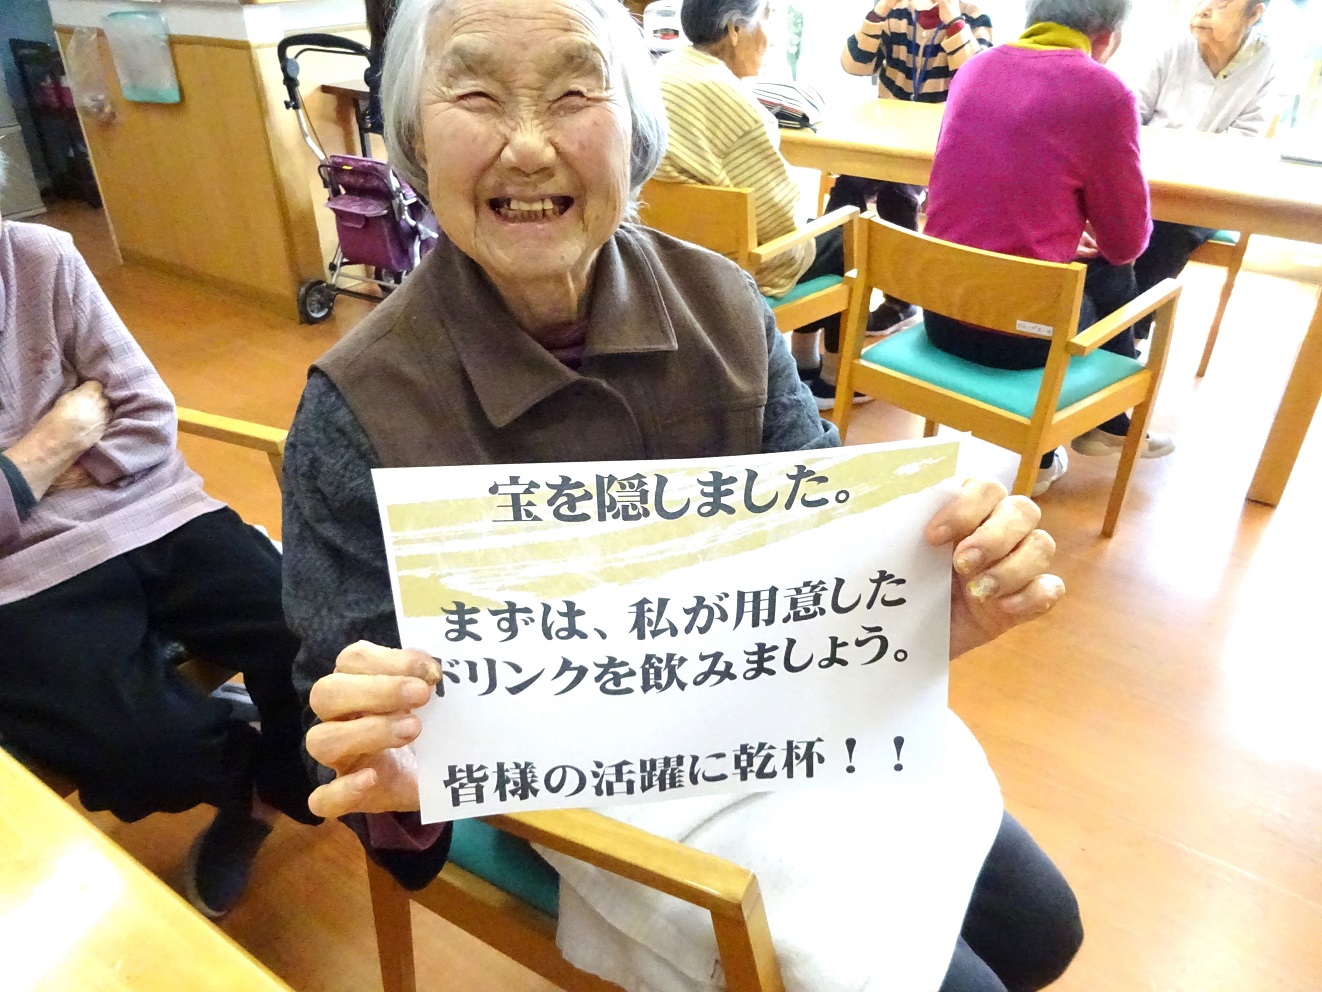 宝を隠しました。
まずは、私が用意した
ドリンクを飲みましょう。
皆様の活躍に乾杯！！